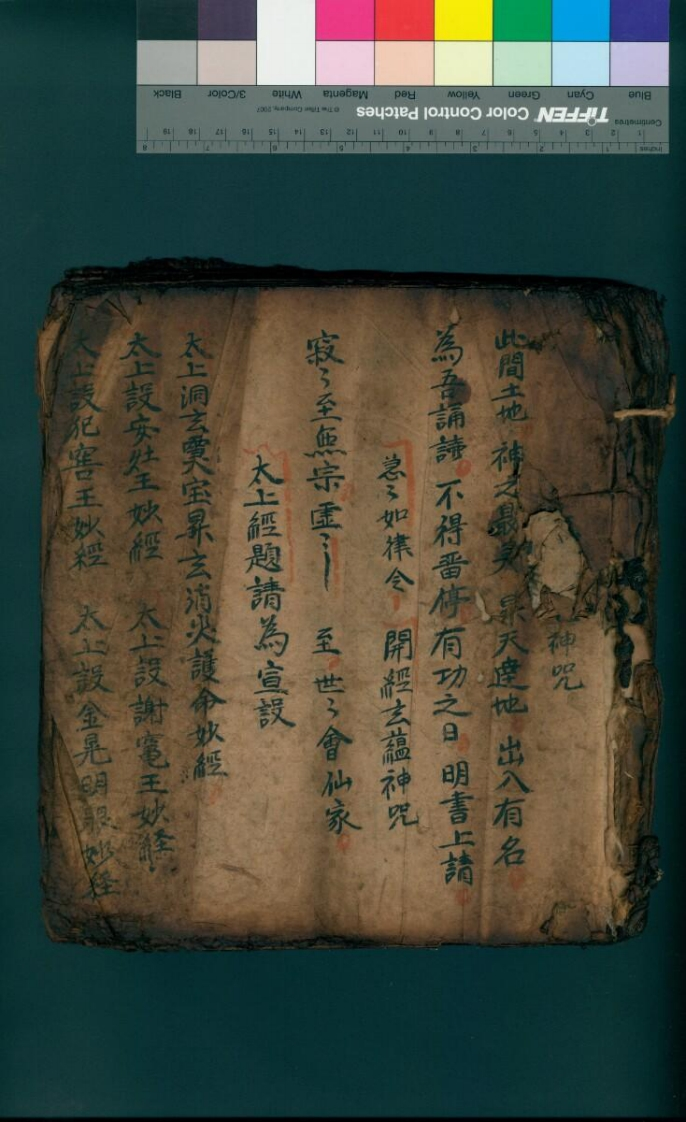 神咒
此間土地 神之最灵 昇天達地 出入有名
為吾誦誦 不得畱停 有功之日 明書上請
急〻如律令 開經玄蘊神咒
寂〻至無宗 虛〻 至世〻會仙家
太上經題請為宣設
太上洞玄靈宝昇玄消灾護命妙經
太上設安灶王妙經 太上設謝竃王妙経
太上設犯害王妙經 太上設金晃明 妙経
Blue Cyan Green Yellow Red Magenta White 3/Color Black
TIFFEN Color Control Patches © The Tiffen Company, 2007
Centimetres
Inches